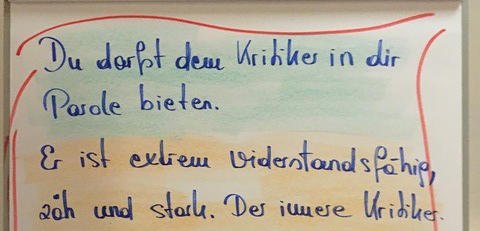 Du darfst dem Kritiker in dir
Parole bieten.
Er ist extrem widerstandsfähig,
zäh und stark. Der innere Kritiker.